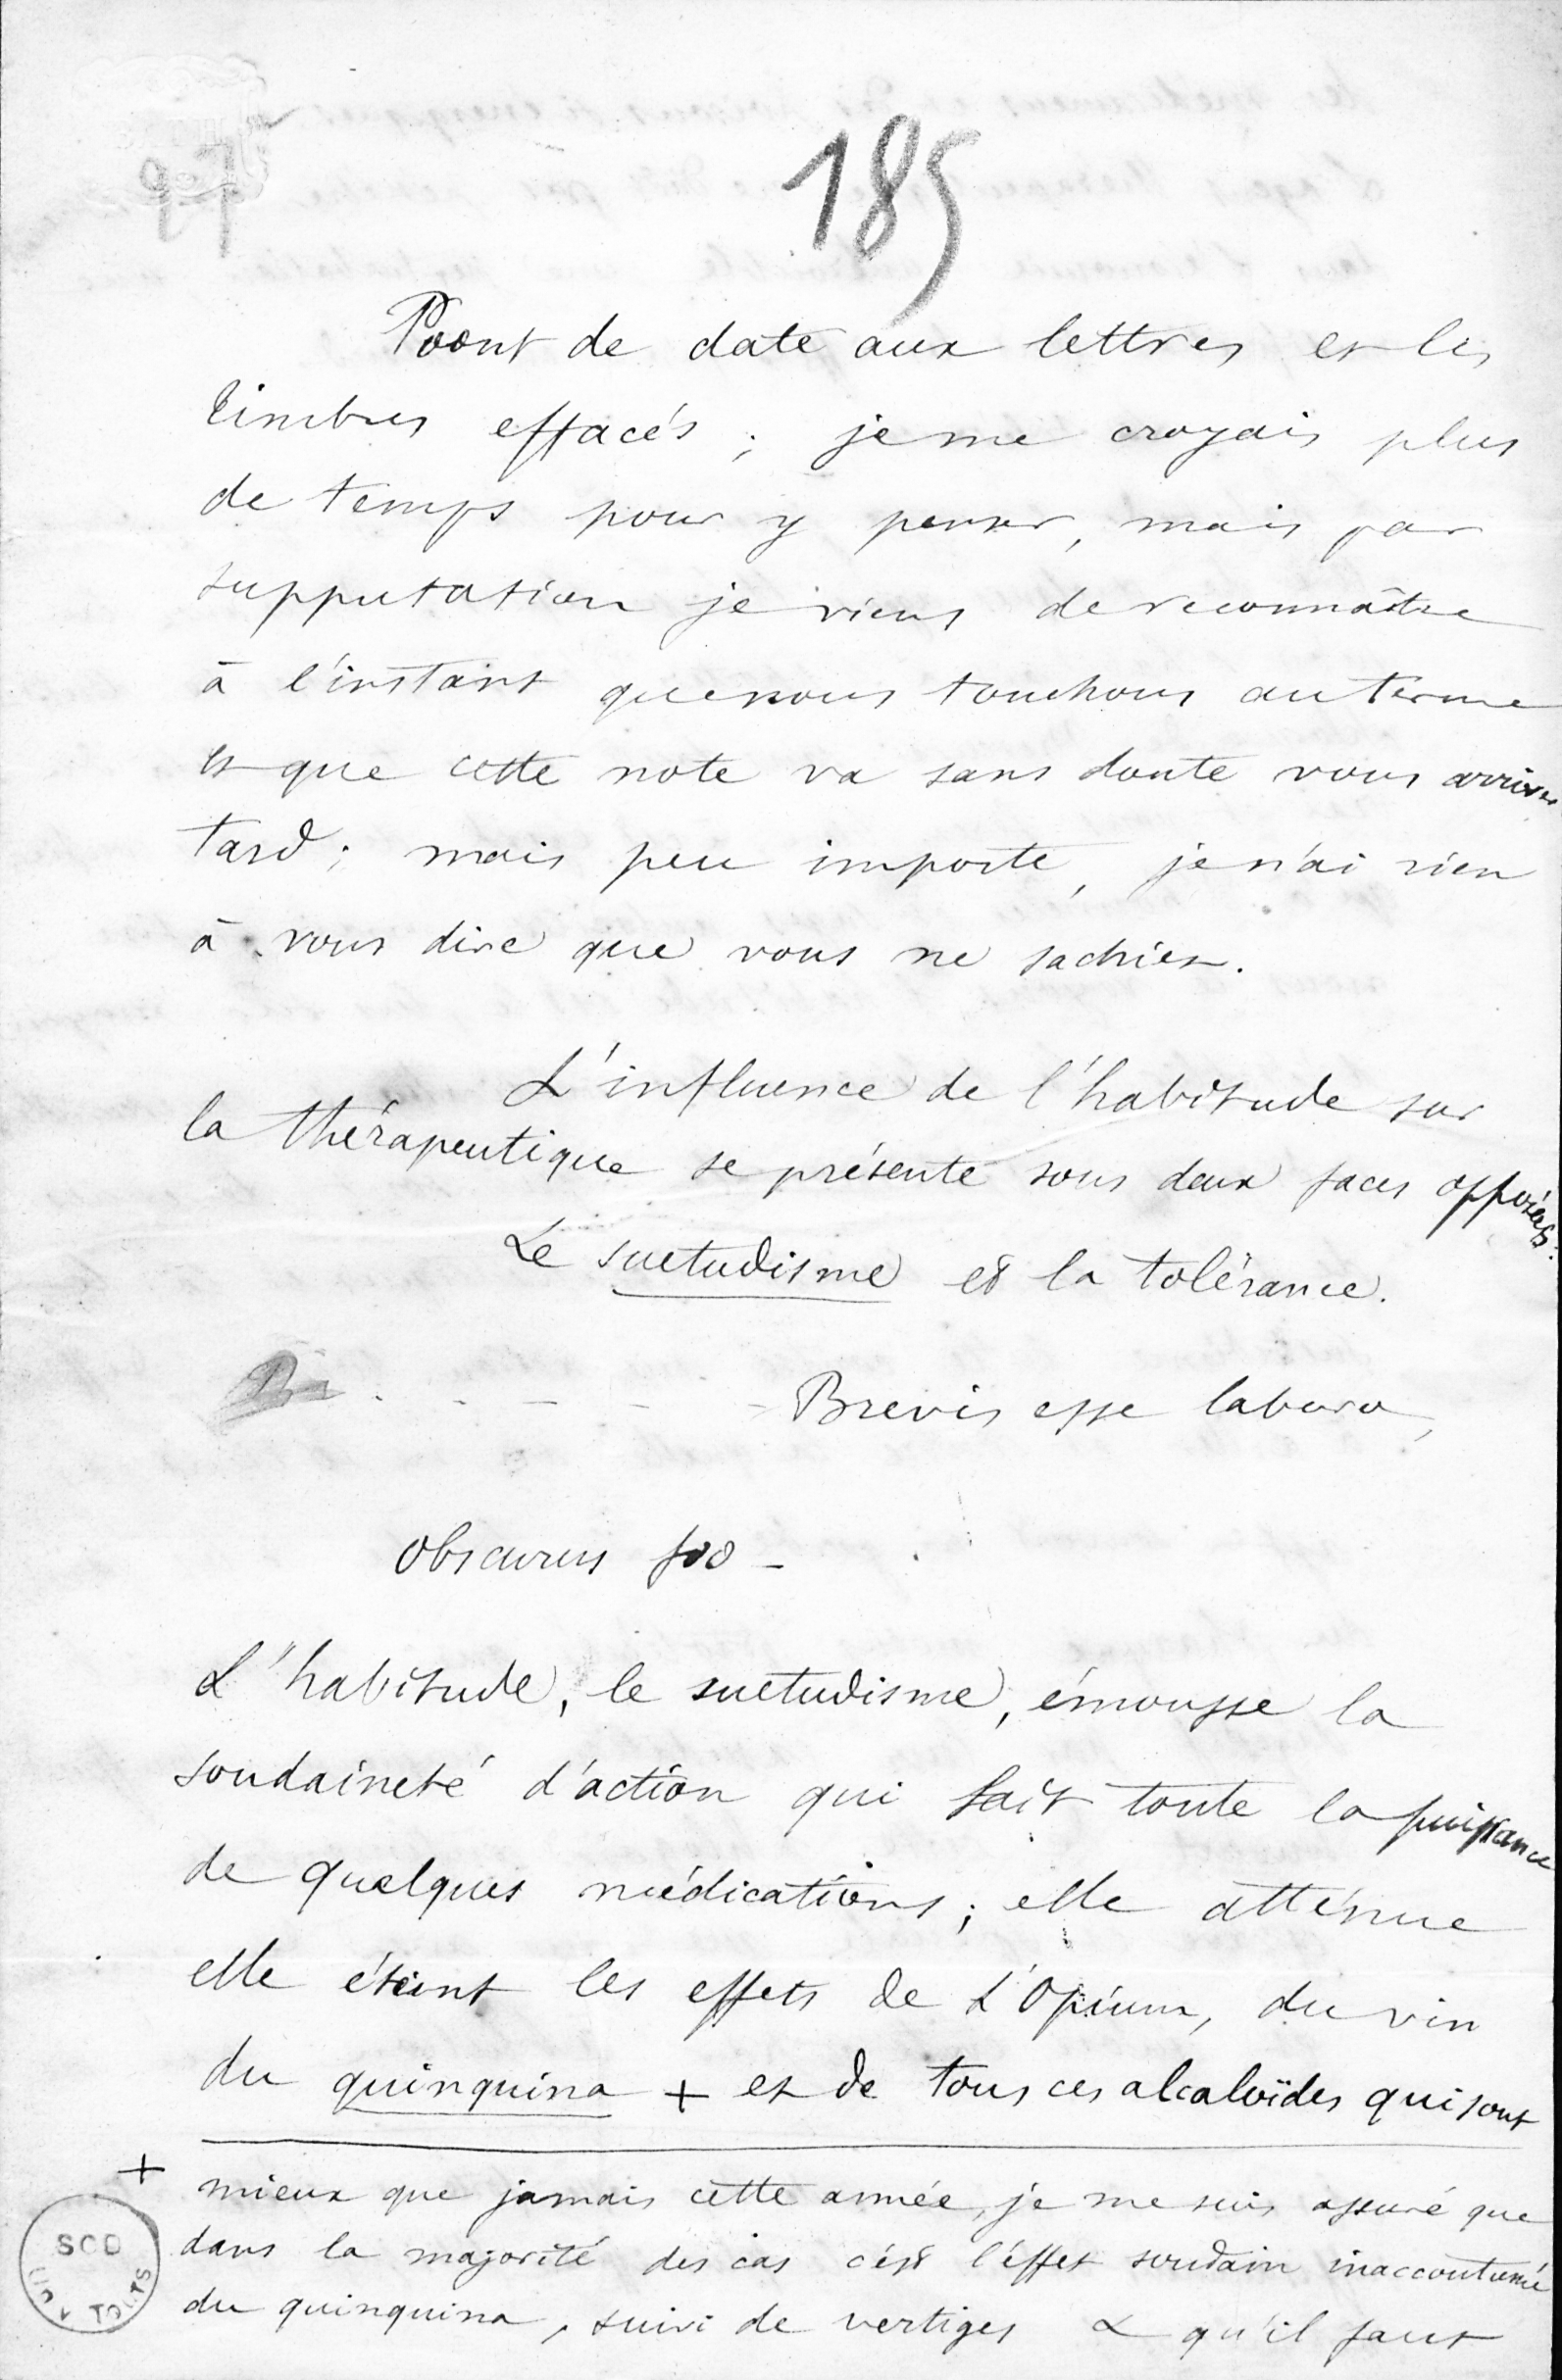 185
Point de date aux lettres et les
timbres effacés ; je me croyais plus
de temps pour y penser, mais par
supputation je viens de reconnaître
à l'instant que nous touchons au terme
et que cette note va sans doute vous arriver
tard ; mais peu importe, je n'ai rien
à vous dire que vous ne sachiez.
L'influence de l'habitude sur
la thérapeutique se présente sous deux faces opposées.
Le suetudisme et la tolérance.
Brevis esse laboro,
obscurus fio -
L'habitude, le suetudisme, émousse la
soudaineté d'action qui fait toute la puissance
de quelques médications ; elle atténue
elle éteint les effets de L'Opium, du vin
du quinquina + et de tous ces alcaloïdes qui sont
+ mieux que jamais cette année, je me suis assuré que
dans la majorité des cas c'est l'effet soudain inaccoutumé
du quinquina, suivi de vertiges & qu'il faut
SCD
TOURS